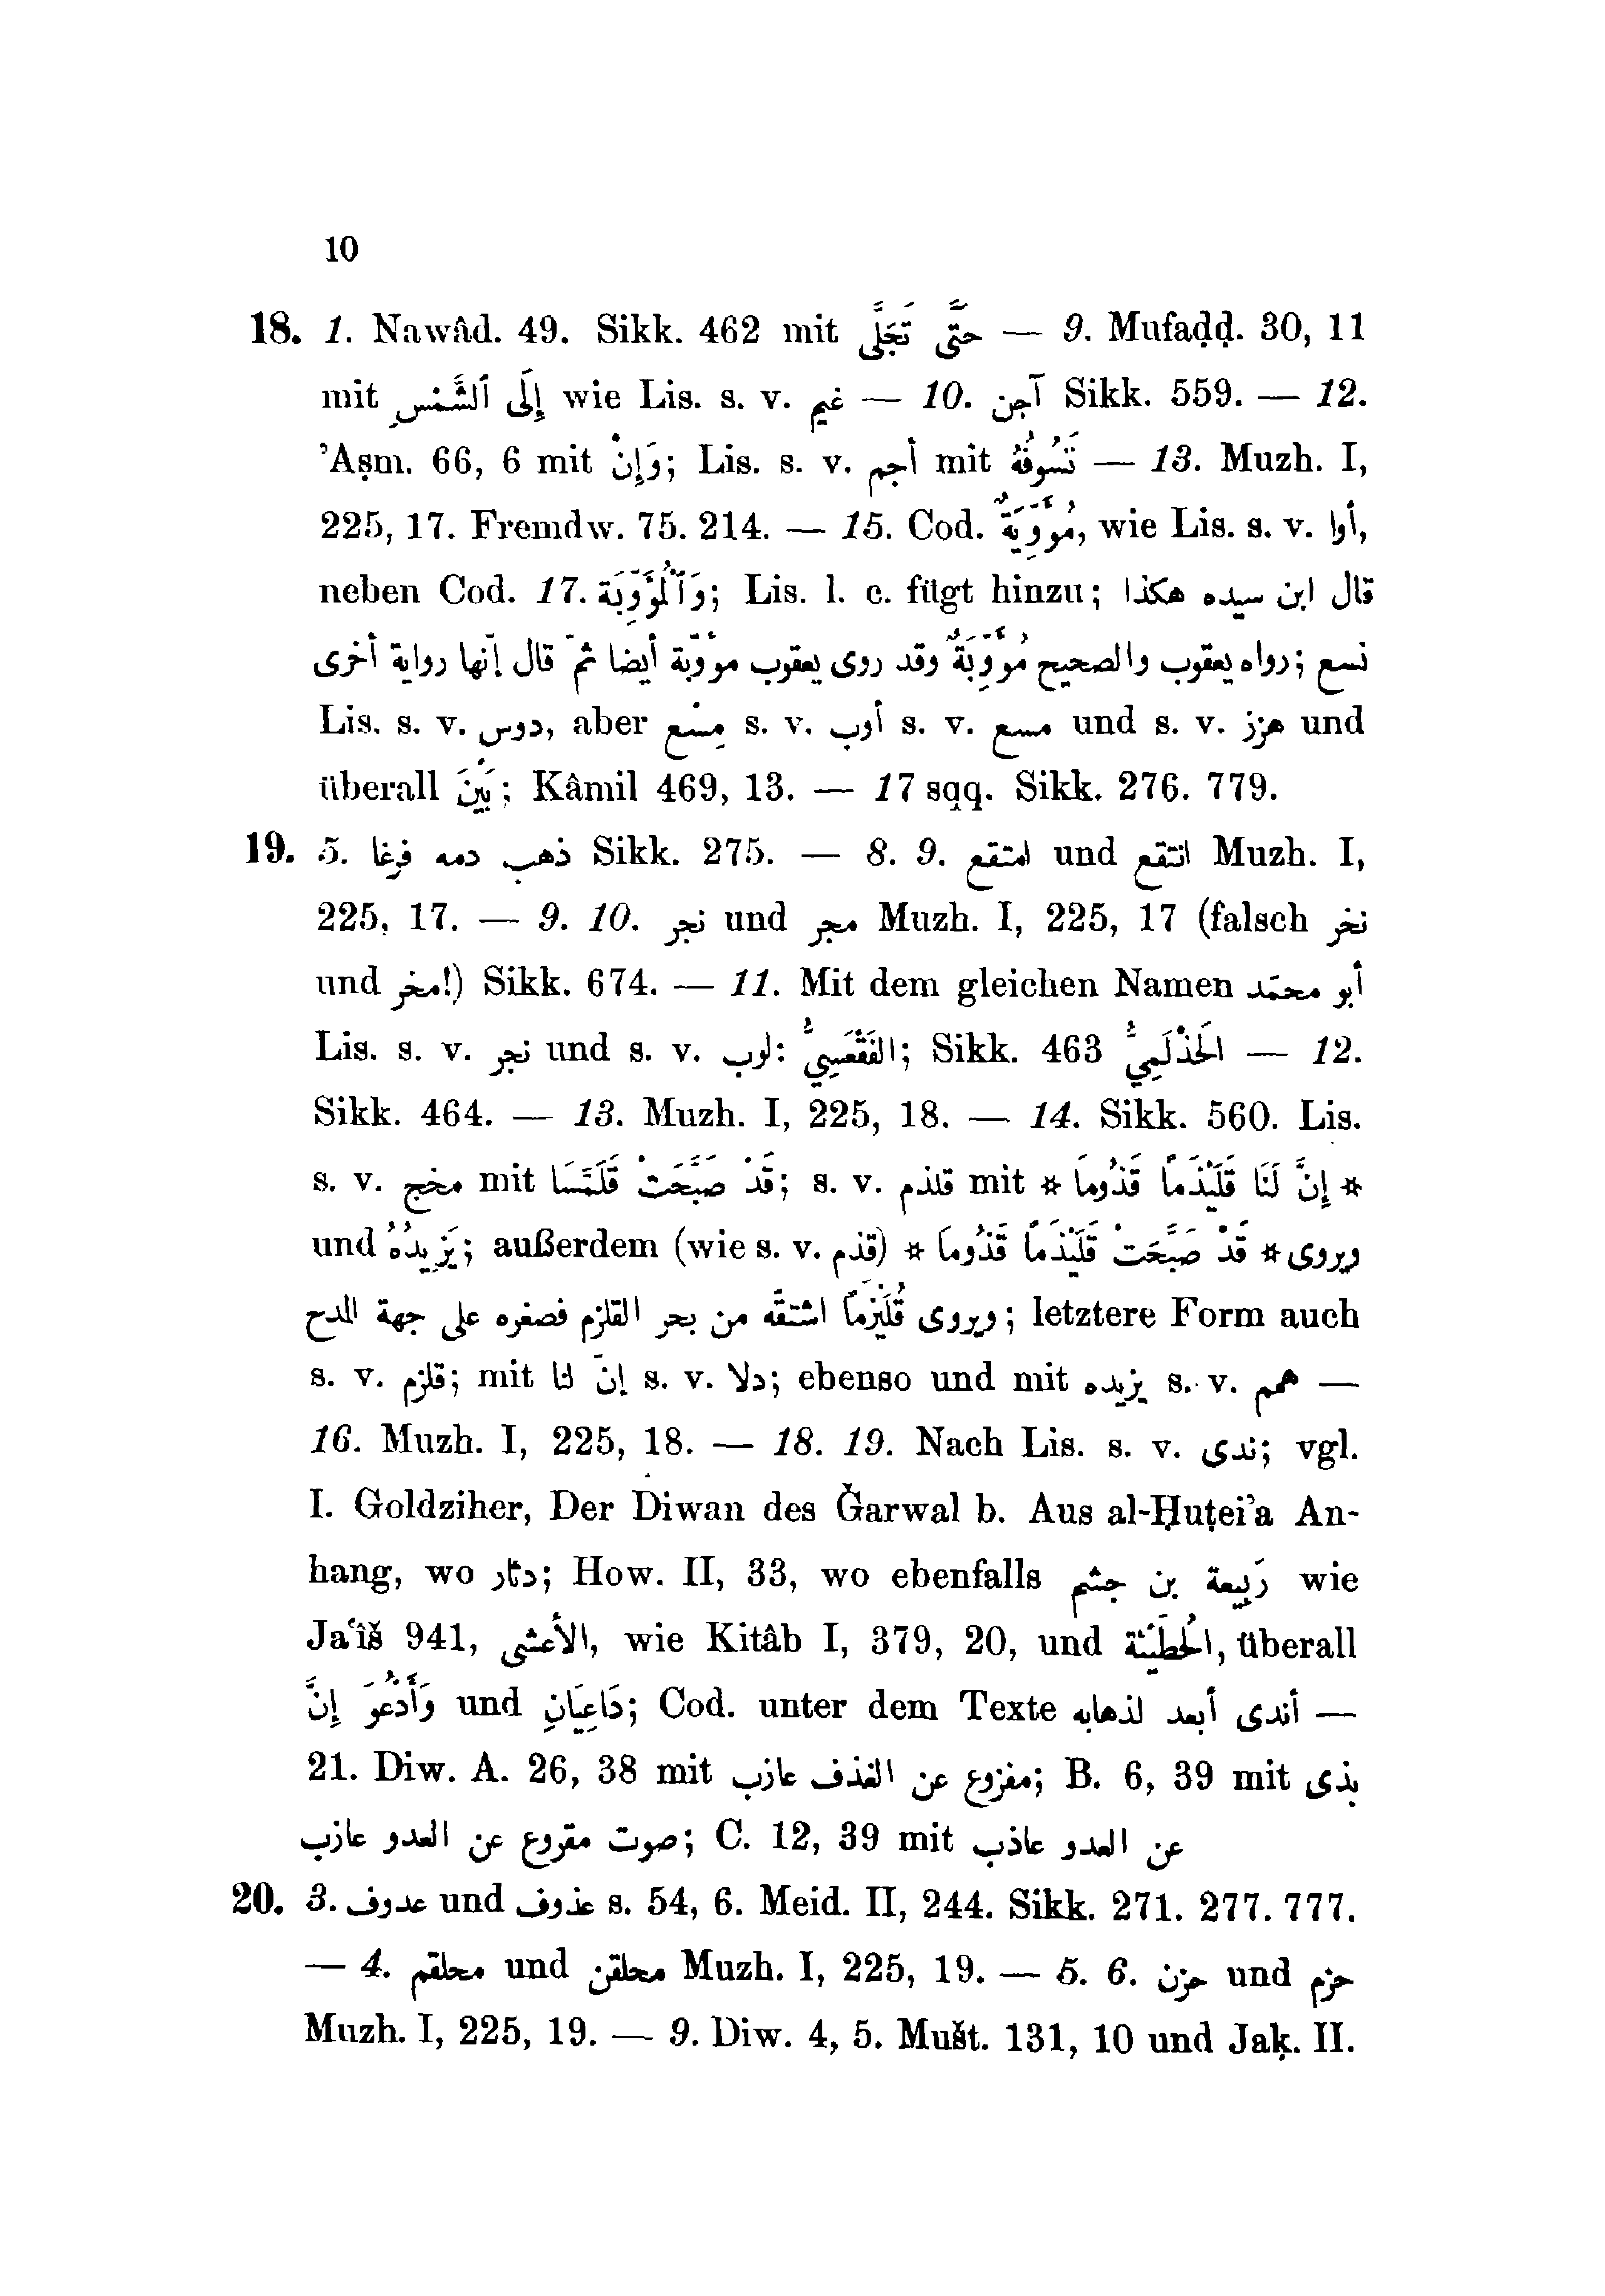 10
18. 1. Nawâd. 49. Sikk. 462 mit حَتَّى تَجَلَّى — 9. Mufaḍḍ. 30, 11
mit إِلَى ٱلشَّمْسِ wie Lis. s. v. غيم — 10. آجن Sikk. 559. — 12.
’Aṣm. 66, 6 mit وَإِنْ; Lis. s. v. أجم mit تَسُوفُهُ — 13. Muzh. I,
225, 17. Fremdw. 75. 214. — 15. Cod. مُؤَوِّيَةٌ, wie Lis. s. v. أوا,
neben Cod. 17. وَٱلْمُؤَوِّبَة; Lis. l. c. fügt hinzu; قال ابن سيده هكذا
رواه يعقوب والصحيح مُؤَوِّبَةٌ وقد روى يعقوب مؤوّبة أيضا ثم قال إنّها رواية أخرى; نسع
Lis. s. v. دوس, aber مِسْع s. v. أوب s. v. مسع und s. v. هزز und
überall بَيْنَ; Kâmil 469, 13. — 17 sqq. Sikk. 276. 779.
19. 5. ذهب دمه فرغا Sikk. 275. — 8. 9. امتقع und انتقع Muzh. I,
225, 17. — 9. 10. نجر und مجر Muzh. I, 225, 17 (falsch نخر
und مخر!) Sikk. 674. — 11. Mit dem gleichen Namen أبو محمّد
Lis. s. v. نجر und s. v. لوب: الفَقْعَسِيُّ; Sikk. 463 الحَذْلَمِيُّ — 12.
Sikk. 464. — 13. Muzh. I, 225, 18. — 14. Sikk. 560. Lis.
s. v. مخج mit قَدْ صَبَّحَتْ قَلَمَّسَا; s. v. قلذم mit * إِنَّ لَنَا قَلَيْذَمًا قَذُومَا *
und يَزِيدُهُ; außerdem (wie s. v. قذم) * ويروى * قَدْ صَبَّحَتْ قَلَيْذَمًا قَذُومَا
ويروى قُلَيْزِمًا اشتقّه من بحر القلزم فصغره على جهة المدح; letztere Form auch
s. v. قلزم; mit إنّ لنا s. v. دلا; ebenso und mit يزيده s. v. همم —
16. Muzh. I, 225, 18. — 18. 19. Nach Lis. s. v. ندى; vgl.
I. Goldziher, Der Diwan des Ǧarwal b. Aus al-Ḥuṭei’a An-
hang, wo دثار; How. II, 33, wo ebenfalls رَبيعة بن جشم wie
Ja‘îš 941, الأعْشى, wie Kitâb I, 379, 20, und الحُطَيْئة, überall
وَأَدْعُوَ إِنَّ und دَاعِيَانِ; Cod. unter dem Texte أندى أبعد لذهابه —
21. Diw. A. 26, 38 mit مفزوع عن القذف عازب; B. 6, 39 mit بذى
صوت مقروع عن العدو عازب; C. 12, 39 mit عن العدو عاذب
20. 3. عدوف und عذوف s. 54, 6. Meid. II, 244. Sikk. 271. 277. 777.
— 4. محلقم und محلقن Muzh. I, 225, 19. — 5. 6. حزن und حزم
Muzh. I, 225, 19. — 9. Diw. 4, 5. Mušt. 131, 10 und Jaḳ. II.